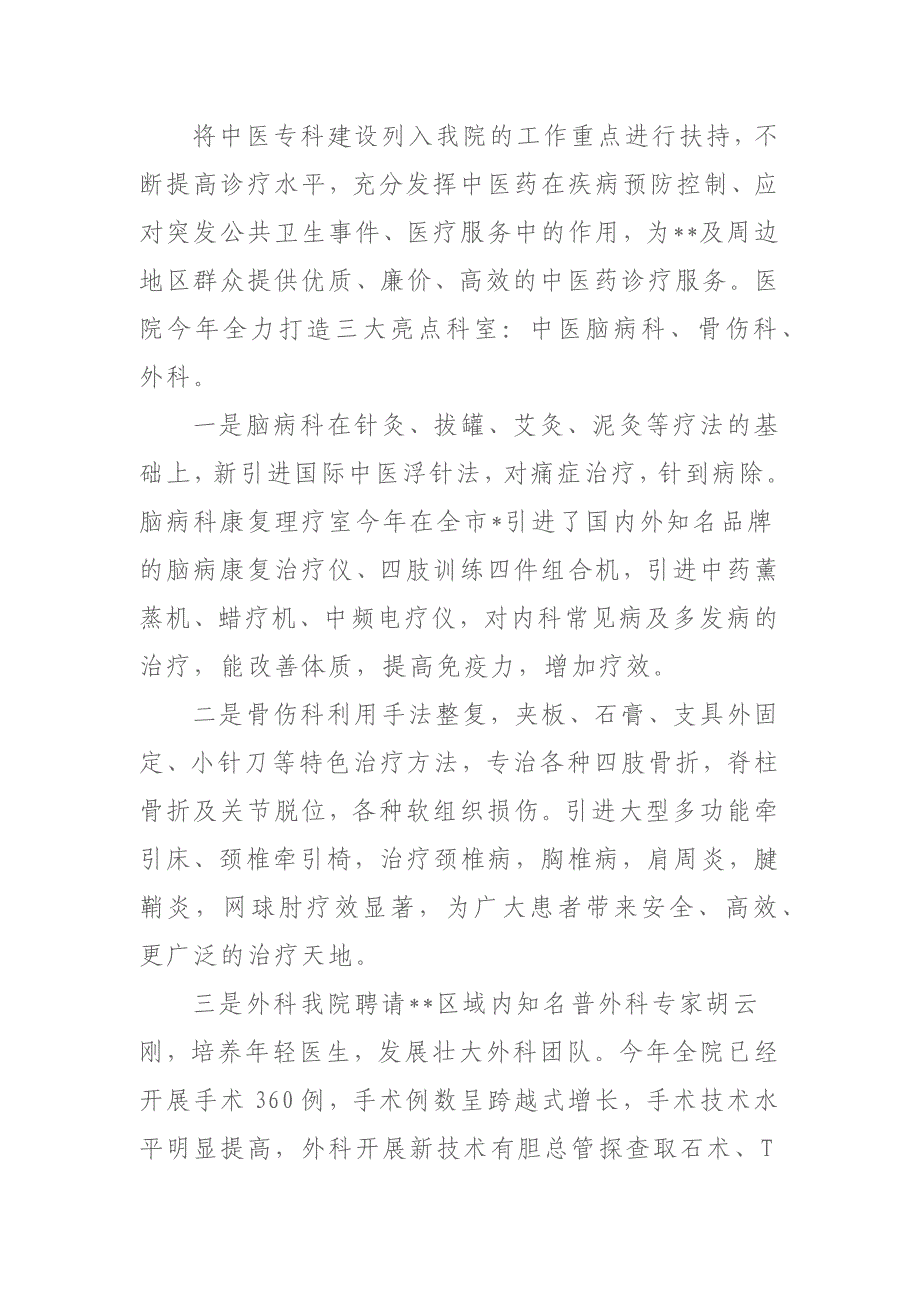 将中医专科建设列入我院的工作重点进行扶持，不
断提高诊疗水平，充分发挥中医药在疾病预防控制、应
对突发公共卫生事件、医疗服务中的作用，为**及周边
地区群众提供优质、廉价、高效的中医药诊疗服务。医
院今年全力打造三大亮点科室：中医脑病科、骨伤科、
外科。
一是脑病科在针灸、拔罐、艾灸、泥灸等疗法的基
础上，新引进国际中医浮针法，对痛症治疗，针到病除。
脑病科康复理疗室今年在全市*引进了国内外知名品牌
的脑病康复治疗仪、四肢训练四件组合机，引进中药薰
蒸机、蜡疗机、中频电疗仪，对内科常见病及多发病的
治疗，能改善体质，提高免疫力，增加疗效。
二是骨伤科利用手法整复，夹板、石膏、支具外固
定、小针刀等特色治疗方法，专治各种四肢骨折，脊柱
骨折及关节脱位，各种软组织损伤。引进大型多功能牵
引床、颈椎牵引椅，治疗颈椎病，胸椎病，肩周炎，腱
鞘炎，网球肘疗效显著，为广大患者带来安全、高效、
更广泛的治疗天地。
三是外科我院聘请**区域内知名普外科专家胡云
刚，培养年轻医生，发展壮大外科团队。今年全院已经
开展手术 360 例，手术例数呈跨越式增长，手术技术水
平明显提高，外科开展新技术有胆总管探查取石术、T